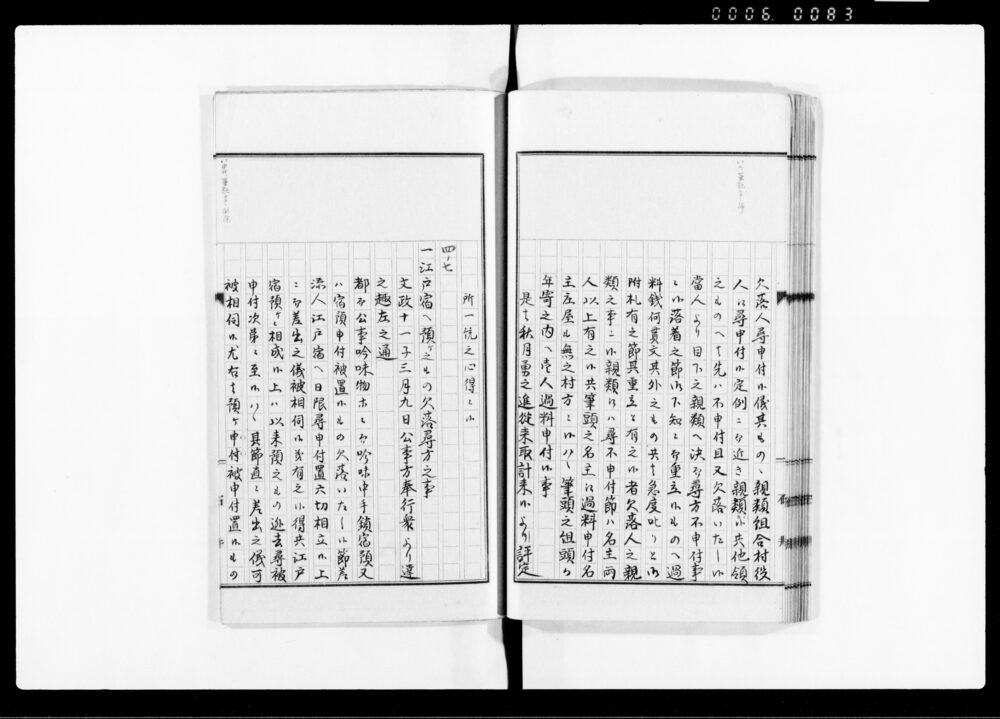 0006. 0083
欠落人尋申付候儀其もの、親類組合村役
人江尋申付候定例ニ而近き親類ハ共他領
之ものへハ先ハ不申付且又欠落いたし候
當人より目下之親類へ決而尋方不申付事
ニ候落着之節御下知ニ而重立候ものへ過
料銭何貫文其外之もの共ハ急度叱りと御
附札有之節其重立と有之候者欠落人之親
類之事ニ候親類江ハ尋不申付節ハ名主両
人以上有之候共筆頭之名主江過料申付名
主庄屋も無之村方ニ候ハヽ筆頭之組頭か
年寄之内へ壱人過料申付候事
是ハ秋月勇之進従来取計来候より評定
所一統之心得ニ候
四ノ七
一江戸宿へ預ケ之もの欠落尋方之事
文政十一子三月九日公事方奉行衆より達
之趣左之通
都而公事吟味物ホニ而吟味中手鎖宿預又
ハ宿預申付被置候もの欠落いたし候節差
添人江戸宿へ日限尋申付置六切相立候上
ニ而差出之儀被相伺候も有之候得共江戸
宿預ケ相成候上ハ以来預之もの逃去尋被
申付次第ニ至候ハヽ其節直ニ差出之儀可
被相伺候尤右ハ預ケ申付被申付置候もの